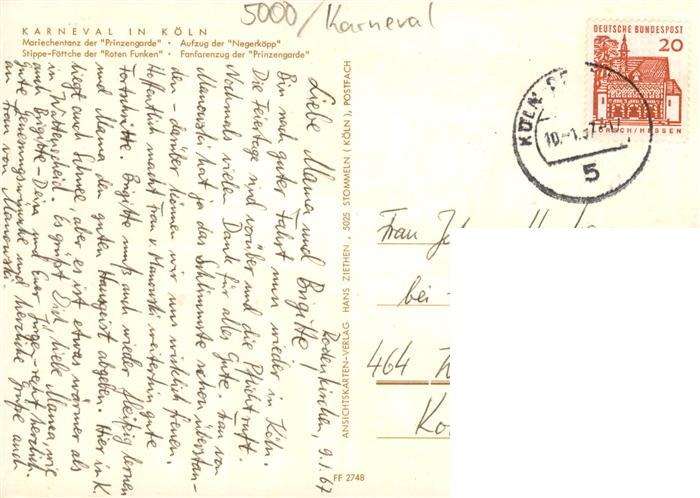 5000/Karneval
KARNEVAL IN KÖLN
Mariechentanz der "Prinzengarde" · Aufzug der "Negerköpp"
Stippe-Föttche der "Roten Funken" · Fanfarenzug der "Prinzengarde"
Rodenkirchen, 9.1.67
Liebe Mama und Brigitte!
Bin nach guter Fahrt nun wieder in Köln.
Die Feiertage sind vorüber und die Pflicht ruft.
Nochmals vielen Dank für alles Gute. Frau von
Manowski hat ja das Schlimmste schon überstan-
den - darüber können wir uns wirklich freuen.
Hoffentlich macht Frau v. Manowski weiterhin gute
Fortschritte. Brigitte muß auch wieder fleißig lernen
und Mama den guten Hausgeist abgeben. Hier in K.
liegt auch Schnee, aber es ist etwas wärmer als
in Wattenscheid. Es grüßt Dich, liebe Mama, wie
auch Brigitte - Dein und Euer Jürger - recht herzlich.
gute Genesungswünsche und herzliche Grüße auch
an Frau von Manowski.
ANSICHTSKARTEN-VERLAG HANS ZIETHEN, 5025 STOMMELN (KÖLN), POSTFACH
FF 2748
DEUTSCHE BUNDESPOST
20
LORSCH/HESSEN
KÖLN
10.-1.67
5
Frau
bei
464